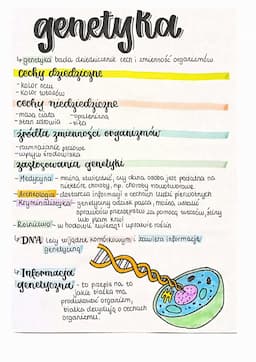 genetyka
↳ genetyka bada dziedziczenie cech i zmienność organizmów
cechy dziedziczne
- kolor oczu
- kolor włosów
cechy niedziedziczne
- masa ciała - opalenizna
- stan zdrowia - blizna
źródła zmienności organizmów
- rozmnażanie płciowe
- wpływ środowiska
zastosowania genetyki
- Medycyna - można stwierdzić, czy dana osoba jest podatna na
niektóre choroby, np. choroby nowotworowe
- Archeologia - dostarcza informacji o cechach ludzi pierwotnych
- Kryminalistyka - genetyczny odcisk palca, można ustalić
sprawców przestępstw za pomocą włosów, śliny
lub plam krwi
- Rolnictwo - w hodowli zwierząt i uprawie roślin
↳ DNA leży w jądrze komórkowym i zawiera informację
genetyczną
↳ Informacja
genetyczna - to przepis na to
jakie białka ma
produkować organizm,
białka decydują o cechach
organizmu.